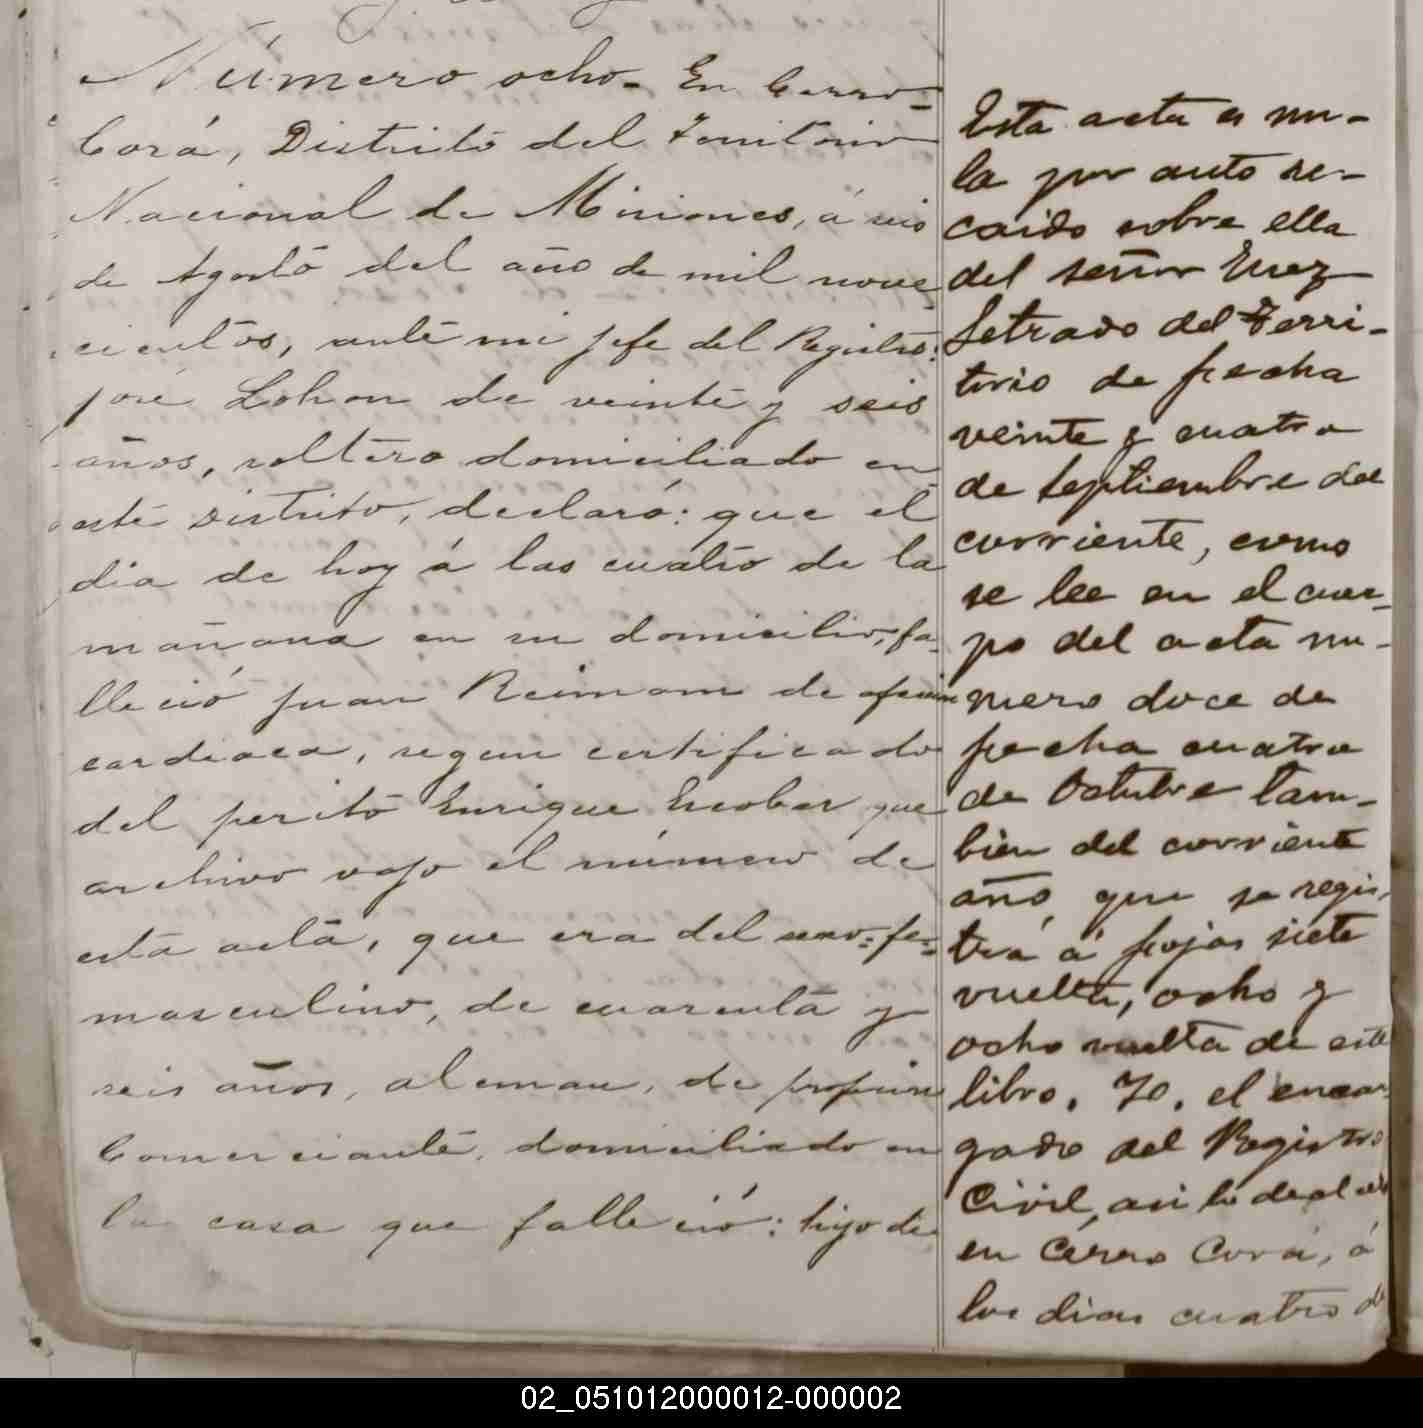 Número ocho - En Cerro-
Corá, Distrito del Territorio
Nacional de Misiones, á seis
de Agosto del año de mil nove-
cientos, ante mi jefe del Registro:
José Lohon de veinte y seis
años, soltero domiciliado en
este Distrito, declaró: que el
dia de hoy á las cuatro de la
mañana en su domicilio, fa-
lleció Juan Reimann de afeccion
cardiaca, segun certificado
del perito Enrique Escobar que
archivo vajo el número de
esta acta, que era del sexo: fe=
masculino, de cuarenta y
seis años, aleman, de profesion
Comerciante, domiciliado en
la casa que falleció: hijo de
Esta acta es nu-
la por auto re-
caido sobre ella
del señor Juez
Letrado del Terri-
torio de fecha
veinte y cuatro
de Septiembre del
corriente, como
se lee en el cuer-
po del acta nu-
mero doce de
fecha cuatro
de Octubre tam-
bien del corriente
año que se regis-
tra á fojas siete
vuelta, ocho y
ocho vuelta de este
libro. Yo, el encar-
gado del Registro
Civil, asi lo declaro
en Cerro Corá, á
los dias cuatro de
02_051012000012-000002